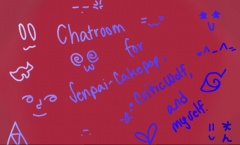 Chatroom
for
Senpai-Cakepop
ArcticWolf,
and
myself.
=^_^=